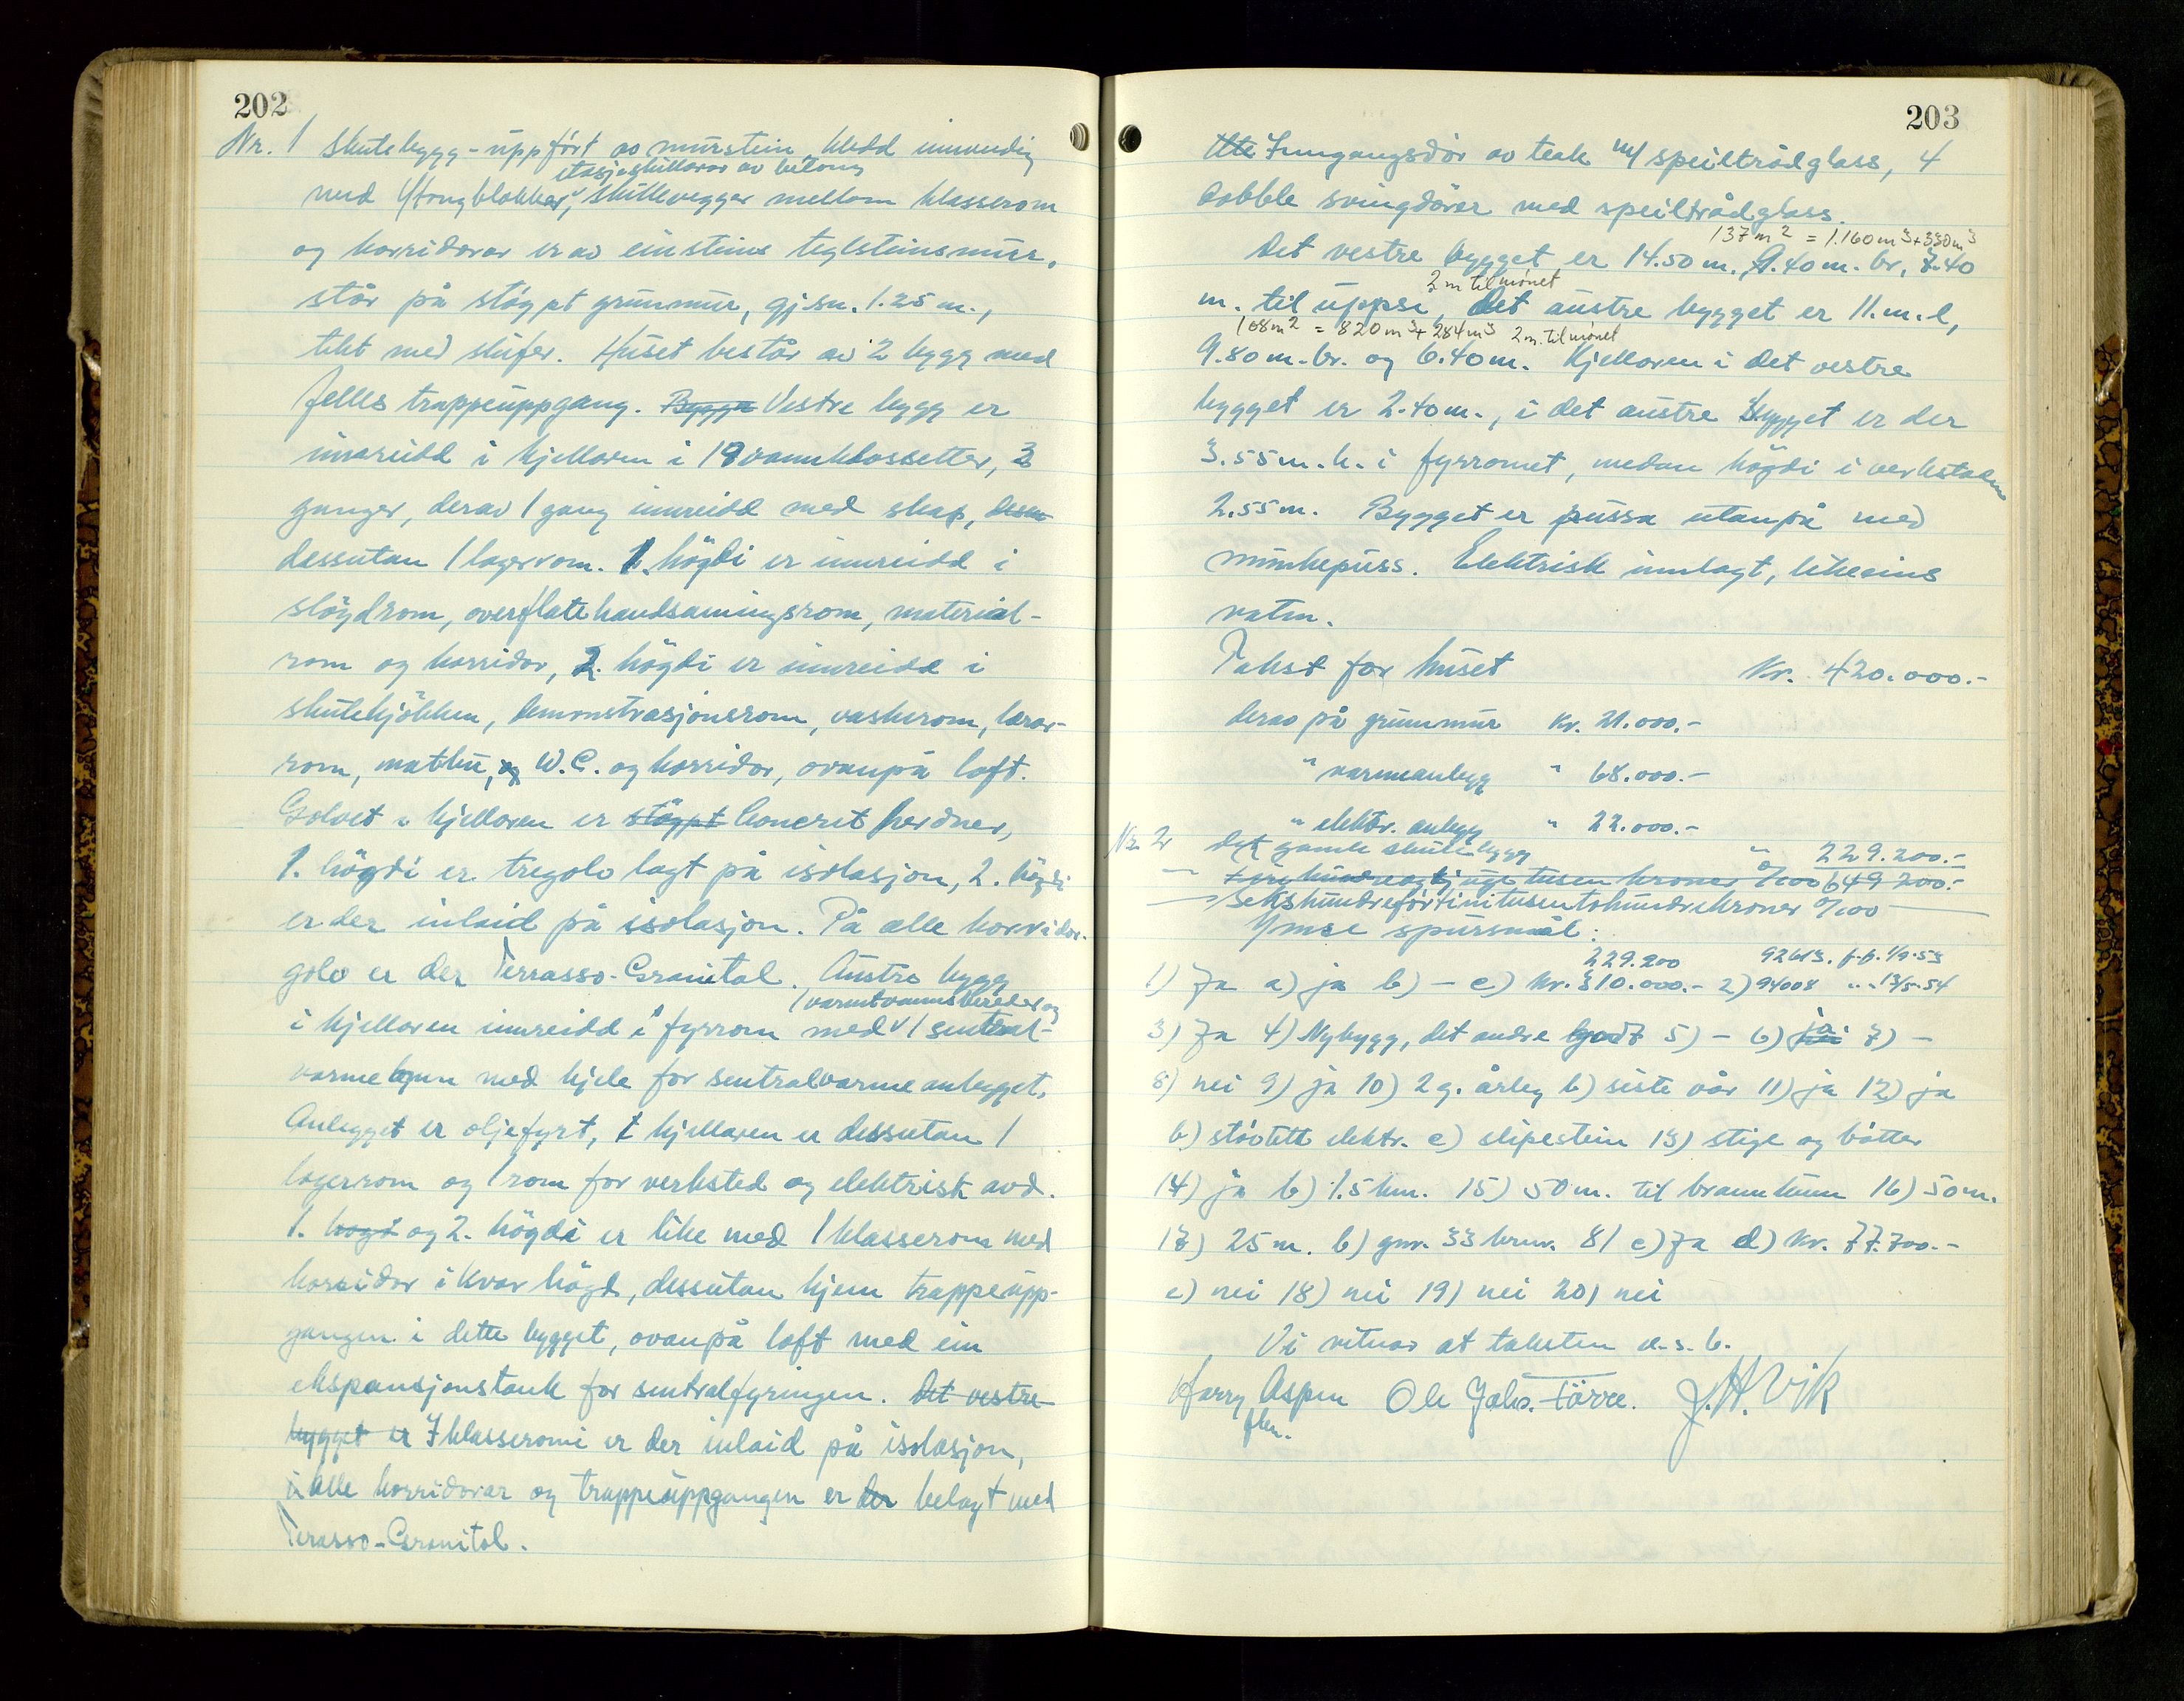 202
Nr. 1 Skulebygg - uppført av murstein kledd innvendig
etasjeskillarar av betong
med Ytongblokker, skillevegger mellom klasserom
og korridorar er av einsteins teglsteinsmur,
står på støypt grunnmur, gj.sn. 1.25 m.,
tekt med skifer. Huset består av 2 bygg med
felles trappeuppgang. Bygga Vestre bygg er
innreidd i kjellaren i 18 vannklossetter, 3
ganger, derav 1 gang innreidd med skap, dessu
dessutan 1 lagerrom. 1. høgdi er innreidd i
sløydrom, overflatehandsamingsrom, material-
rom og korridor, 2. høgdi er innreidd i
skulekjøkken, demonstrasjonsrom, vaskerom, lærar-
rom, matbu, og W.C. og korridor, ovanpå loft.
Golvet i kjellaren er støypt Concret herdner,
1. høgdi er tregolv lagt på isolasjon, 2. høgdi
er der inlaid på isolasjon. På alle korridor-
golv er der Terrasso-Granitol. Austre bygg
1 varmtvannsbereder og
i kjellaren innreidd i fyrrom med 1 sentral-
varmeovn med kjele for sentralvarmeanlegget.
Anlegget er oljefyrt, i kjellaren er dessutan 1
lagerrom og 1 rom for verksted og elektrisk avd.
1. høgdi og 2. høgdi er like med 1 klasserom med
korridor i kvar høgd, dessutan kjem trappeupp-
gangen i dette bygget, ovanpå loft med ein
ekspansjonstank for sentralfyringen. Det vestre
bygget er I klasseromi er der inlaid på isolasjon,
i alle korridorar og trappeuppgangen er der belagt med
Terasso-Granitol.
203
Inngangsdør av teak m/ speiltrådglass, 4
dobble svingdører med speiltrådglass.
137 m² = 1.160 m³ + 330 m³
Det vestre bygget er 14.50 m. 9.40 m. br, 7.40
2 m til mønet
m. til uppsi, Det austre bygget er 11. m. l,
108 m² = 820 m³ + 284 m³ 2 m. til mønet
9.80 m. br. og 6.40 m. Kjellaren i det vestre
bygget er 2.40 m., i det austre bygget er der
3.55 m. h. i fyrromet, medan høgdi i verkstaden
2.55 m. Bygget er pussa utanpå med
munkepuss. Elektrisk innlagt, likeeins
vatn.
Takst for huset Kr. 420.000.-
derav på grunnmur Kr. 21.000.-
" varmeanlegg " 68.000.-
" elektr. anlegg " 22.000.-
Nr. 2 det gamle skulebygg " 229.200.-
firehundreogtjuge tusen kroner 0/100 649 200.-
Sekshundreførtinitusentohundrekroner 0/100
Ymse spursmål:
229.200 92613. f.f. 1/9-53
1) Ja a) ja b) - c) Kr. 310.000.- 2) 94008 " - 13/5-54
3) Ja 4) Nybygg, det andre godt 5) - 6) ja 7) -
8) nei 9) ja 10) 2 g. årleg b) siste vår 11) ja 12) ja
b) støvtett elektr. c) slipestein 13) stige og bøtter
14) ja b) 1.5 km. 15) 50 m. til brannkum 16) 50 m.
17) 25 m. b) gnr. 33 brnr. 81 c) Ja d) Kr. 77.700.-
e) nei 18) nei 19) nei 20) nei
Vi vitnar at taksten o.s.b.
Harry Aspen Ole Johs. Førre. J. H. Vik